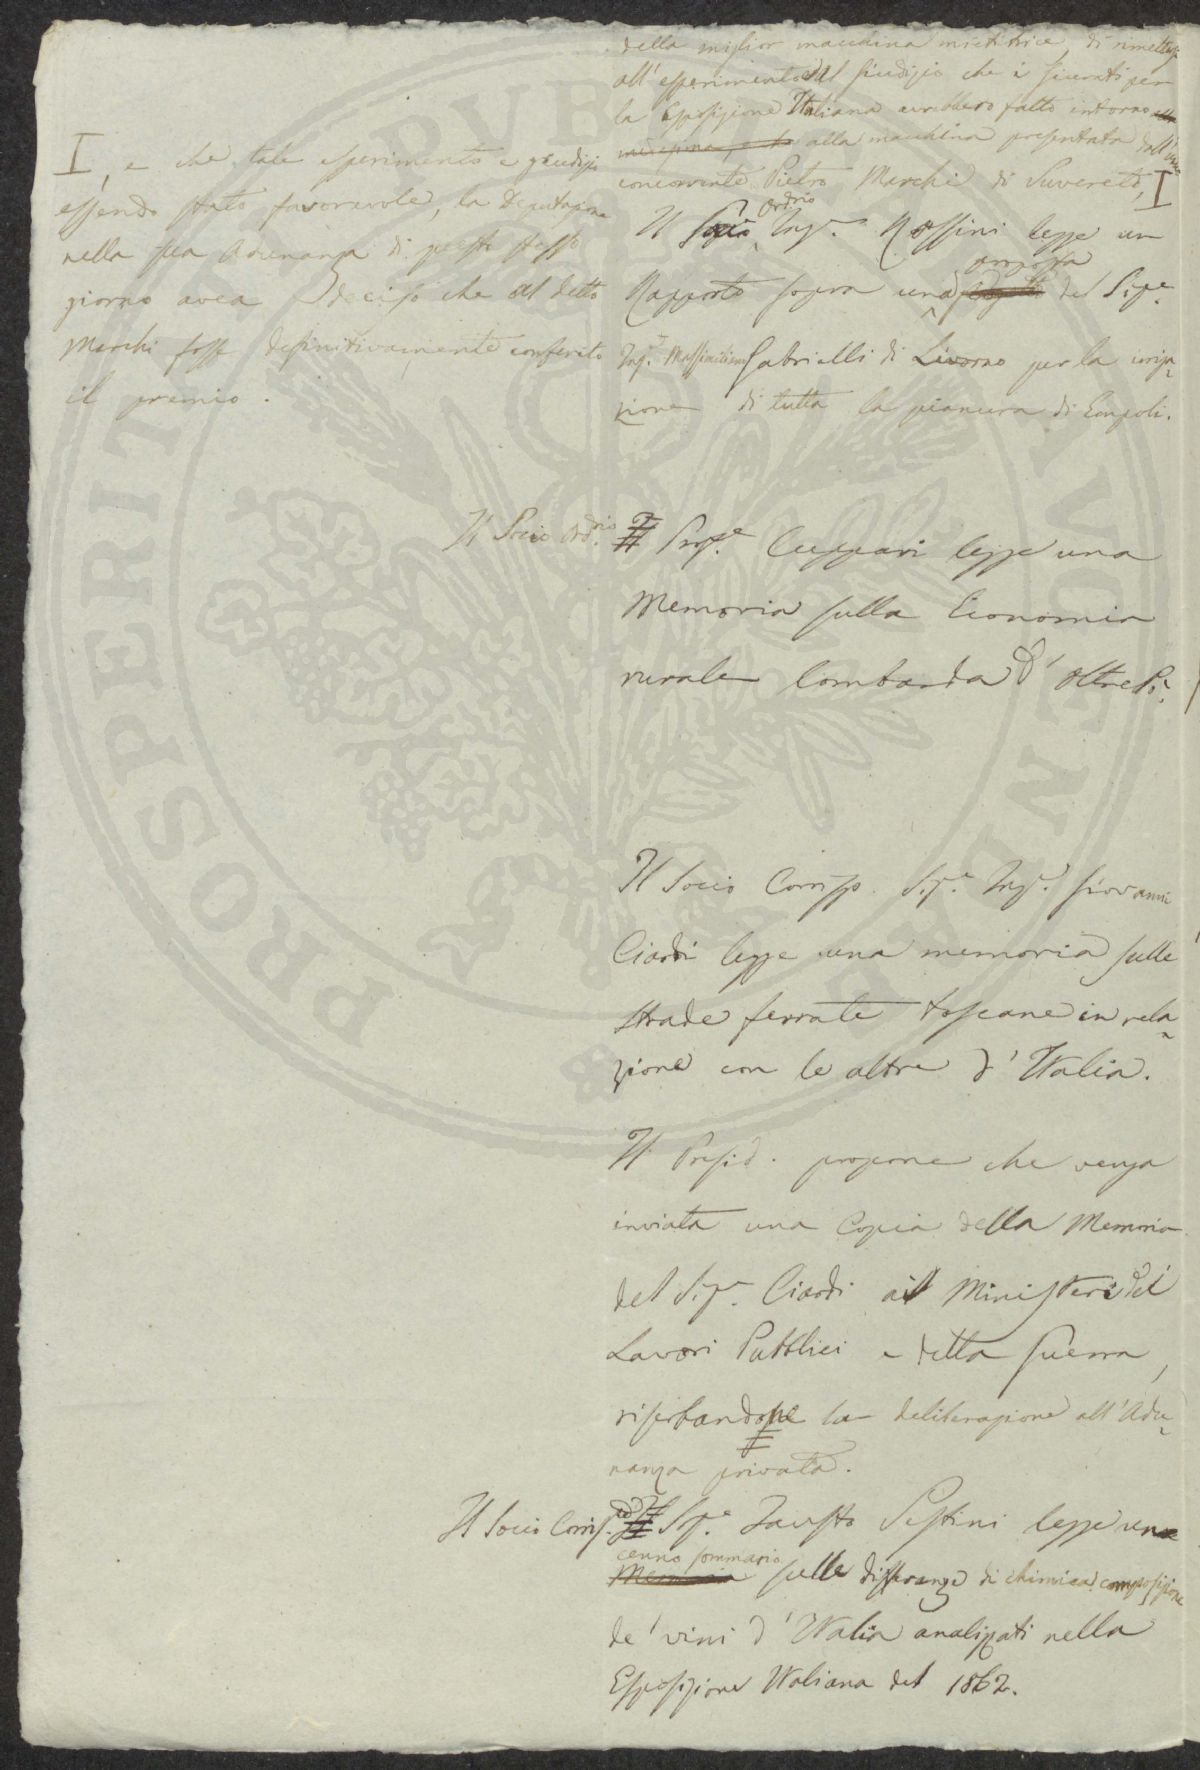 della miglior macchina mietitrice, di rimettersi
all'esperimento e al giudizio che i Giurati per
la Esposizione Italiana avrebbero fatto intorno alla
medesima, e to alla macchina presentata dall'unico
concorrente Pietro Marchi di Suvereto, I
I, e che tale esperimento e giudizio
essendo stato favorevole, la Deputazione
nella sua Adunanza di questo stesso
giorno avea deciso che al detto
Marchi fosse definitivamente conferito
il premio.
Il Socio Ord.rio Ing.e Rossini legge un
Rapporto sopra una proposta del Sig.e
Ing.e Massimiliano Gabrielli di Livorno per la irriga-
zione di tutta la pianura di Empoli.
Il Socio Ord.rio Il Prof.e Cuppari legge una
Memoria sulla Economia
rurale lombarda d'oltre Pò.
Il Socio Corrisp. Sig.e Ing.e Giovanni
Ciardi legge una memoria sulle
strade ferrate toscane in rela-
zione con le altre d'Italia.
Il Presid. propone che venga
inviata una Copia della Memoria
del Sig.e Ciardi ai Ministeri dei
Lavori Pubblici e della Guerra,
riserbandone la deliberazione all'Adu-
nanza privata.
Il Socio Corrisp. Il Sig.e Fausto Sestini legge un
cenno sommario
Memoria sulle differenze di chimica composizione
de' vini d'Italia analizzati nella
Esposizione Italiana del 1862.
PROSPERITATI PUBLICAE AUGENDAE